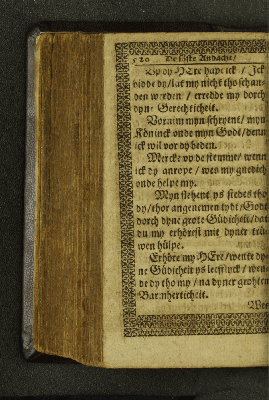 520 De söste Andacht/
Vp dy HEre hape ick / Ick
bidde dy/lat my nicht tho schan-
den werden / erredde my dorch
dyn Gerechticheit.
Vornim myn schryent/ myn
Köninck vnde myn Godt/denn
ick wil vor dy beden.
Mercke vp de stemme/wenn
ick dy anrope / wes my gnedich
vnde help my.
Myn flehent ys stedes tho
dy/thor angenemen tydt/Godt
dorch dyne grote Güdicheit/dat
du my erhörest mit dyner trü-
wen hülpe.
Erhöre my HEre/wente dy-
ne Güdicheit ys leefflyck/ wen-
de dy tho my / na dyner groten
Barmherticheit.